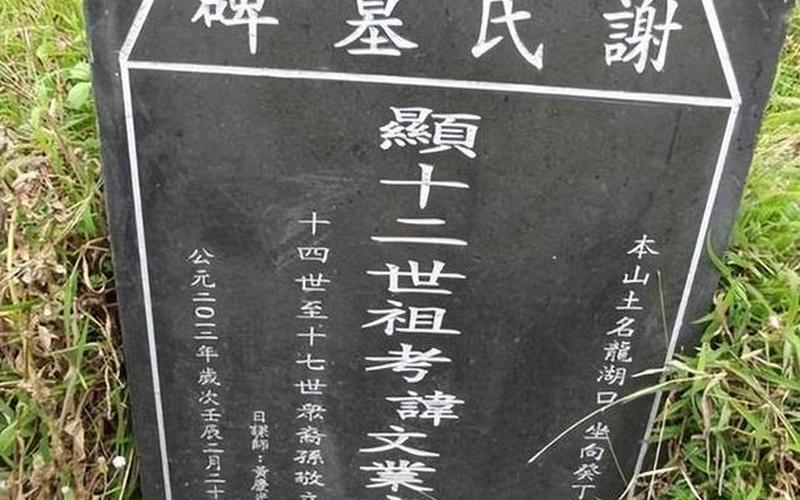 謝氏墓碑
本山土名龍湖口 坐向癸丁
顯十二世祖考諱文業
十四世至十七世衆裔孫敬立
日課師：黃慶
公元二〇一二年歲次壬辰二月二十